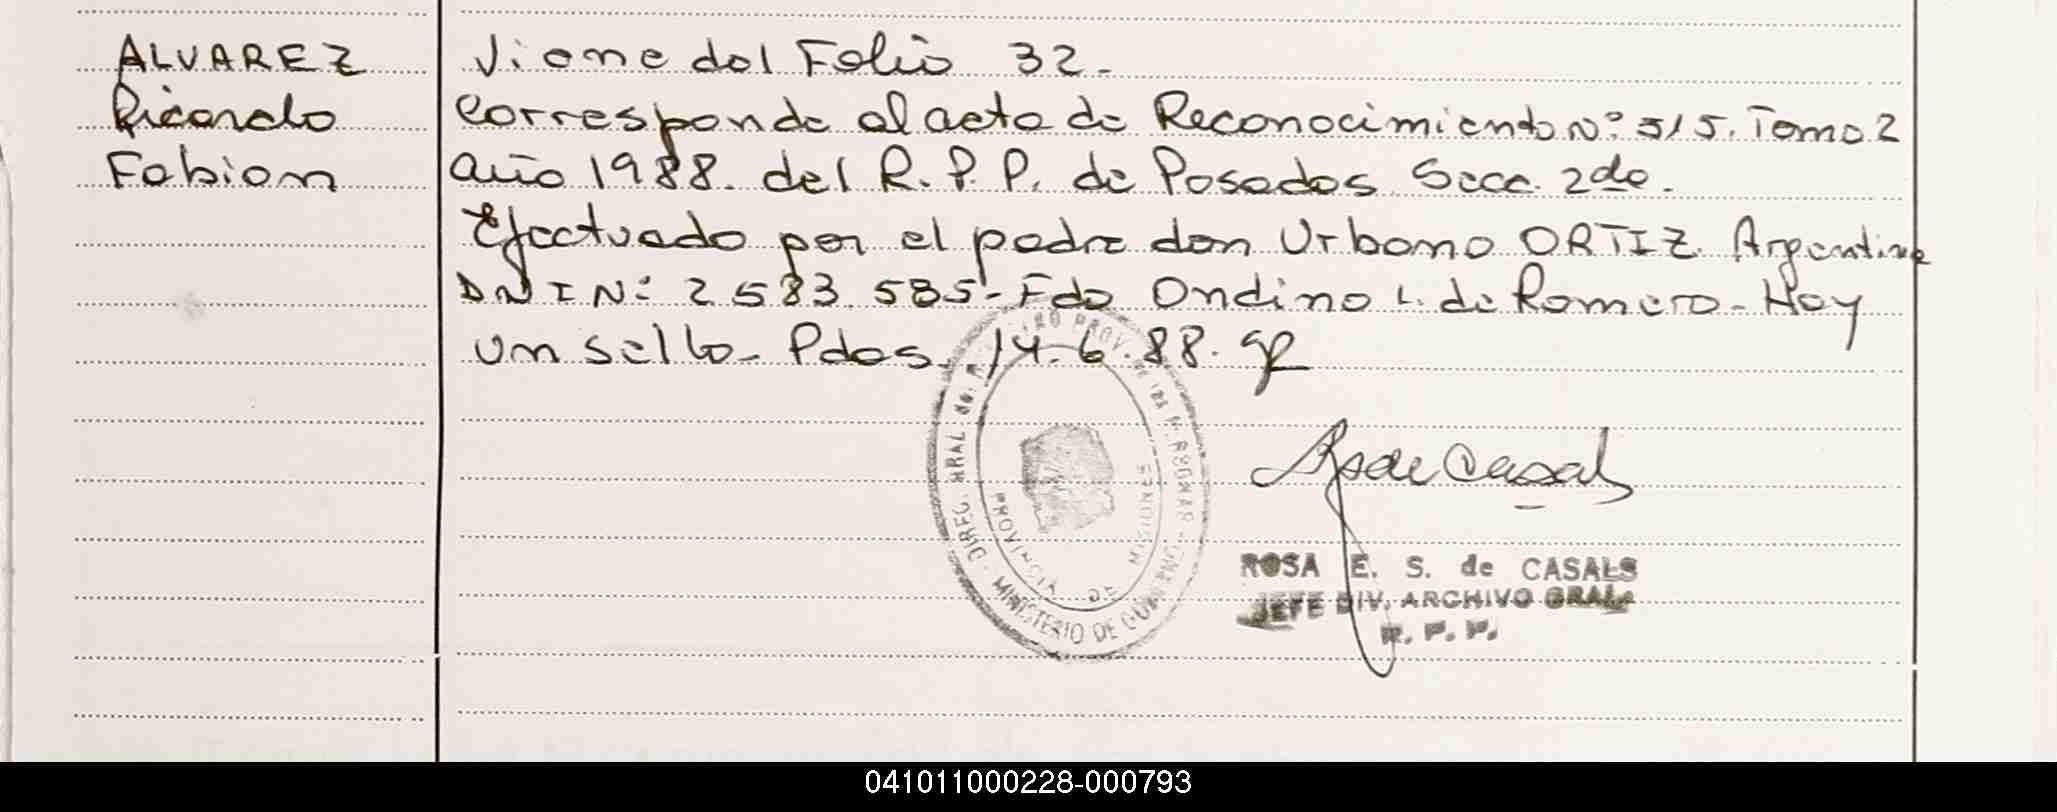 ALVAREZ
Ricardo
Fabian
Viene del Folio 32.
Corresponde al acta de Reconocimiento Nº 515. Tomo 2
año 1988. del R.P.P. de Posadas Secc. 2da.
Efectuado por el padre don Urbano ORTIZ Argentino
DNI Nº 2.583.585- Fdo Ondina L. de Romero- Hay
un sello- Pdas. 14.6.88.
DIREC. GRAL de PROV. de las PERSONAS
MINISTERIO DE
PROVINCIA DE MISIONES
ROSA E. S. de CASALS
JEFE DIV. ARCHIVO GRAL.
R. P. P.
041011000228-000793